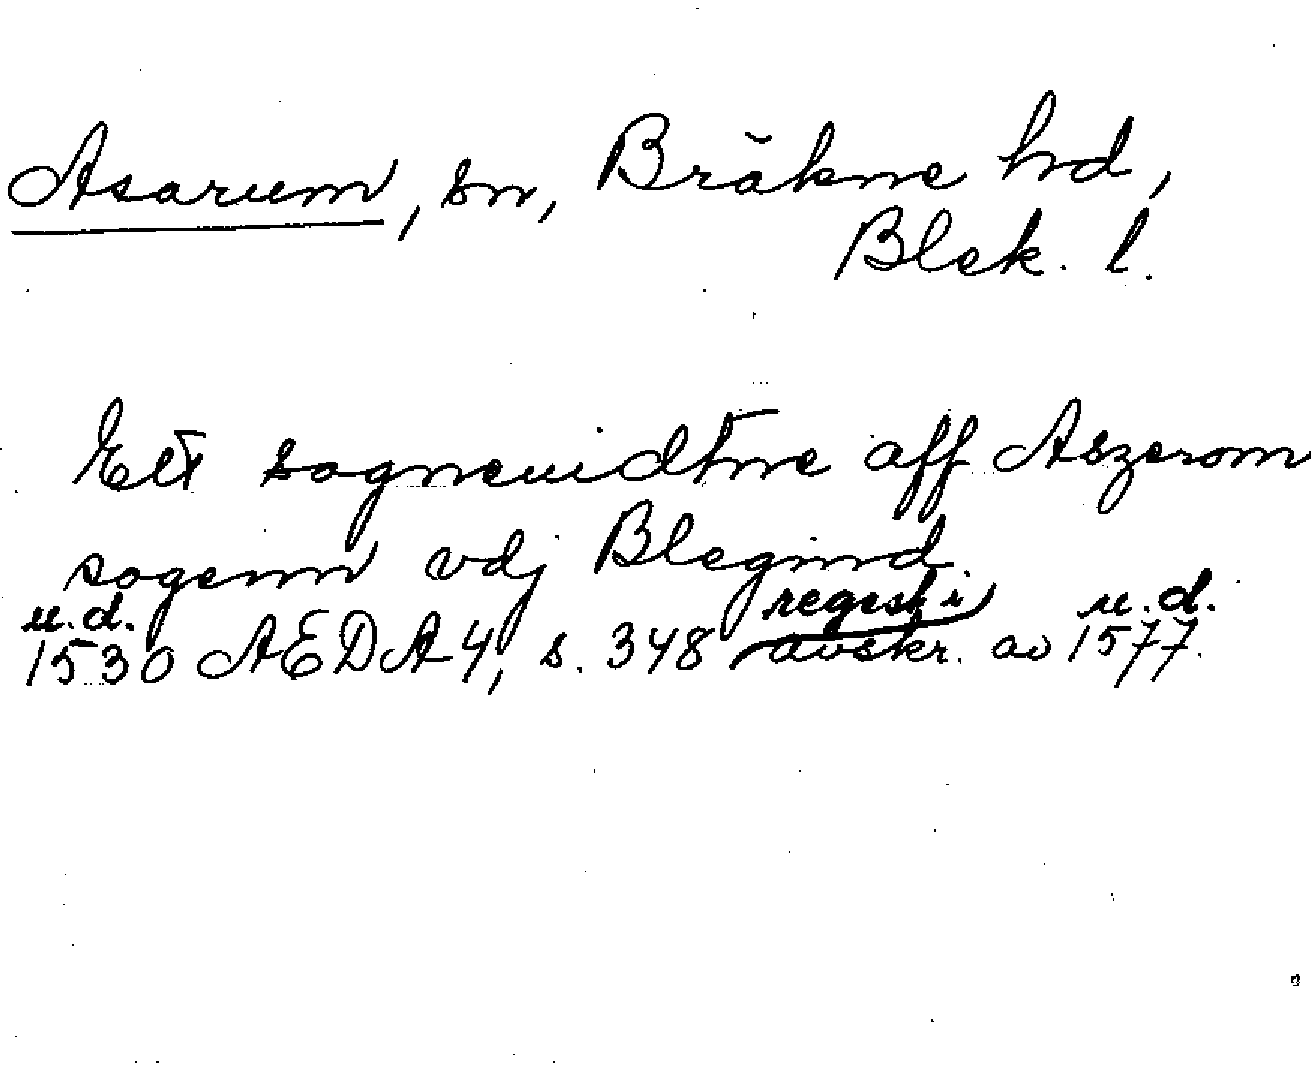 Asarum, sn, Bräkne hd,
Blek. l.
Ett sogneuidtne aff Aszerom
sogenn vdj Blegind.
u.d. regest i u.d.
1530 AEDA 4, s. 348 avskr. av 1577.